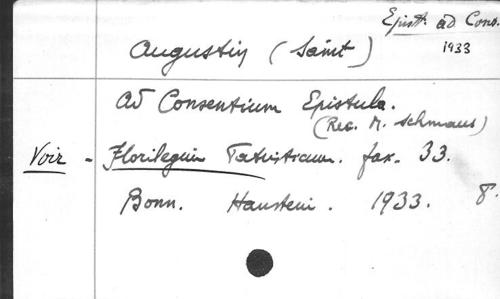 Epist. ad Cons.
1933
Augustin (Saint)
Ad Consentium Epistula.
(Rec. M. Schmaus)
Voir - Florilegium Patristicum. fax. 33.
Bonn. Hanstein. 1933. 8°.